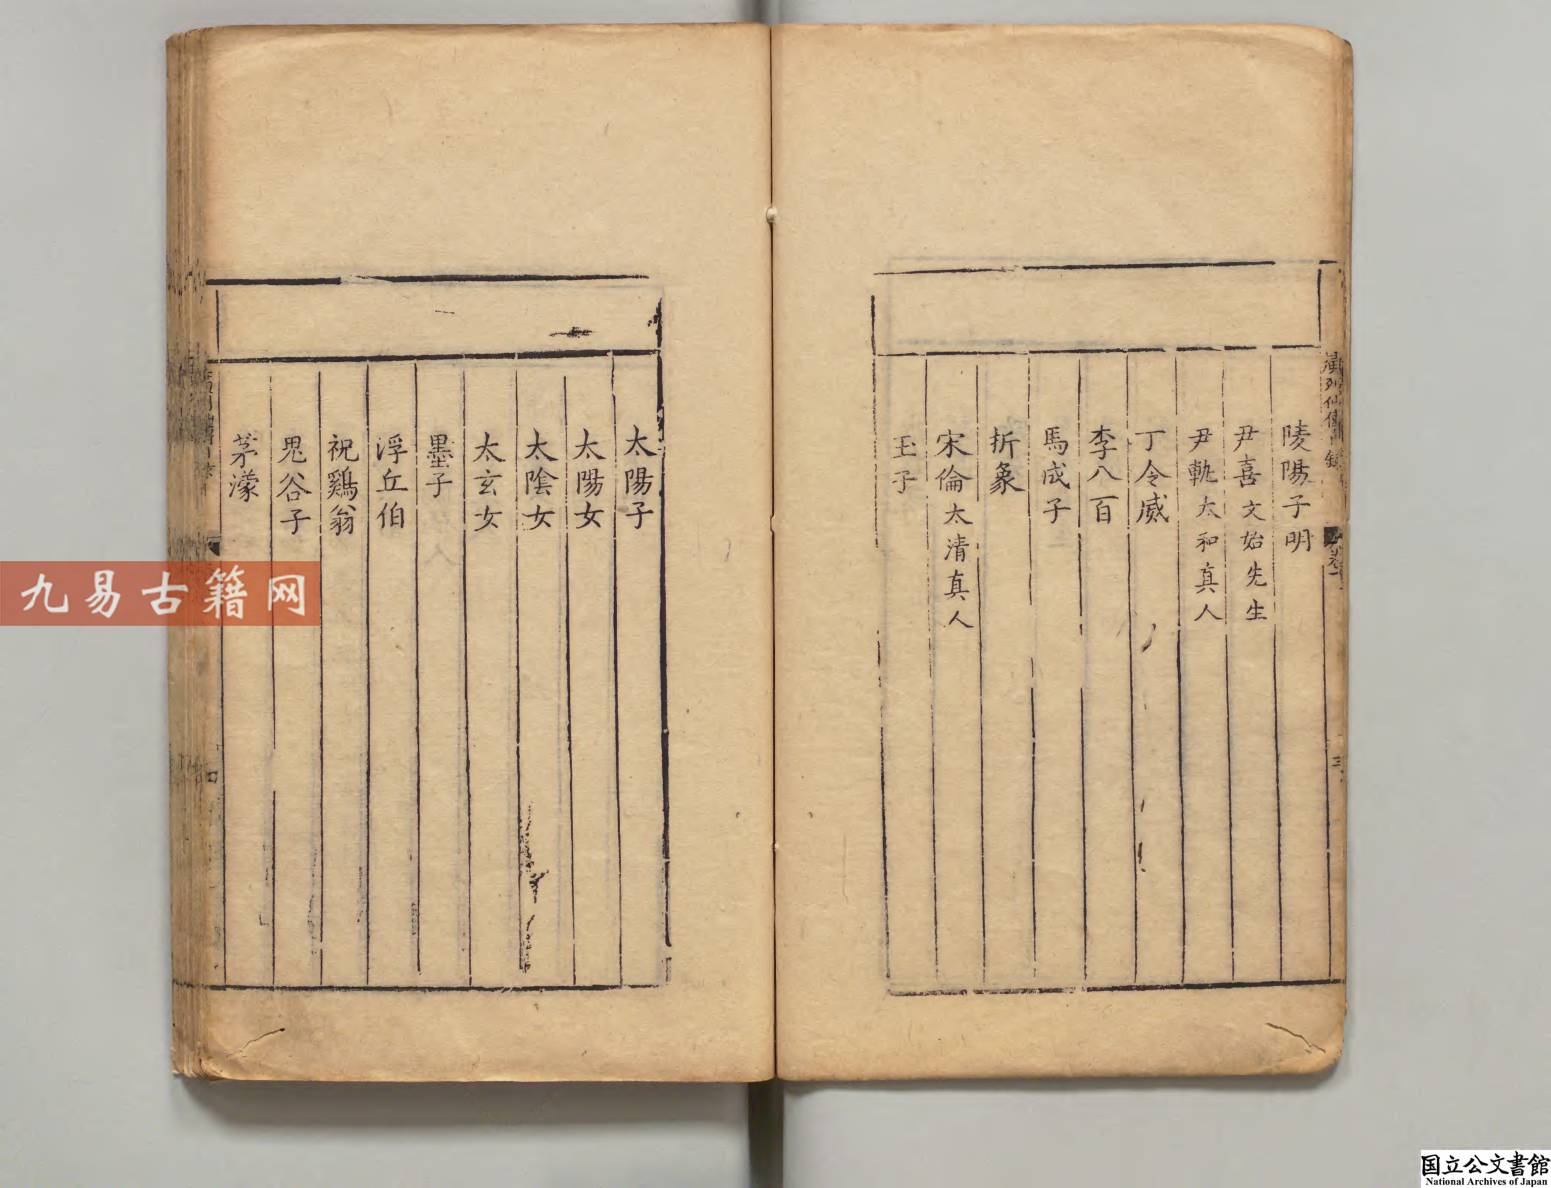 陵陽子明
尹喜文始先生
尹軌太和真人
丁令威
李八百
馬成子
折象
宋倫太清真人
玉子
太陽子
太陽女
太陰女
太玄女
墨子
浮丘伯
祝鷄翁
鬼谷子
茅濛
九易古籍网
国立公文書館
National Archives of Japan